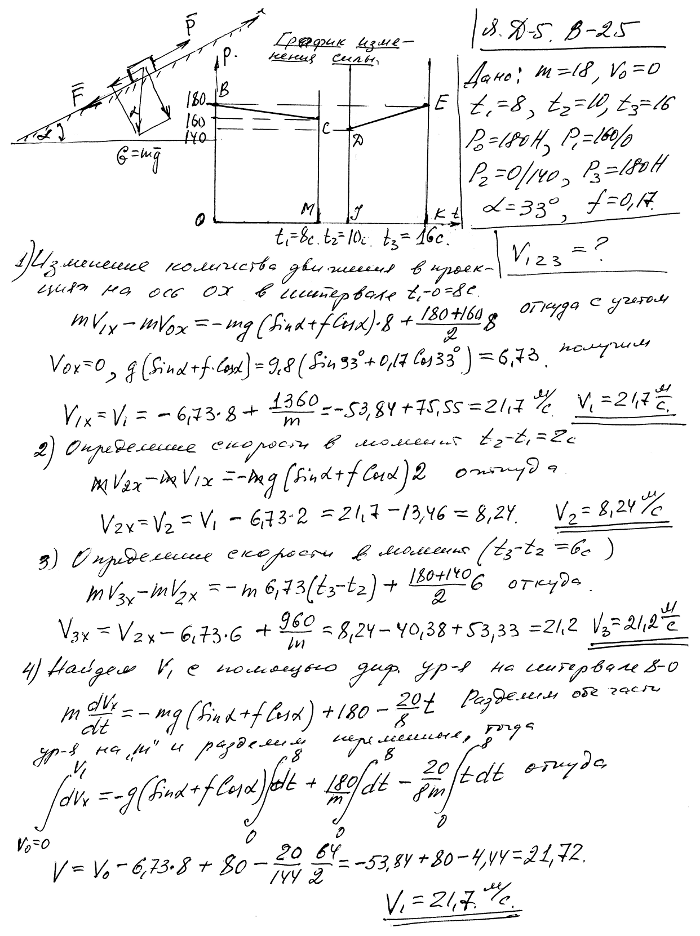 Я. Д-5. В-25
График изме-
нения силы.
P̄
P.
x
F̄
α
α
G=mḡ
B
180
160
140
C
D
E
0
M
J
K t
t₁=8c. t₂=10c. t₃=16c.
Дано: m=18, V₀=0
t₁=8, t₂=10, t₃=16
P₀=180H, P₁=160/0
P₂=0/140, P₃=180H
α=33°, f=0,17.
V₁₂₃=?
1) Изменение количства движения в проек-
циях на ось OX в интервале t₁-0=8c.
mV₁ₓ-mV₀ₓ=-mg(Sinα+fCosα)·8+(180+160)/2 8 откуда с учетом
V₀ₓ=0, g(Sinα+f·Cosα)=9,8(Sin33°+0,17Cos33°)=6,73. получим
V₁ₓ=V₁=-6,73·8+1360/m=-53,84+75,55=21,7 м/с. V₁=21,7 м/с.
2) Определение скорости в момент t₂-t₁=2c
mV₂ₓ-mV₁ₓ=-mg(Sinα+fCosα)2 откуда.
V₂ₓ=V₂=V₁-6,73·2=21,7-13,46=8,24. V₂=8,24 м/с
3) Определение скорости в момент (t₃-t₂=6c)
mV₃ₓ-mV₂ₓ=-m6,73(t₃-t₂)+(180+140)/2 6 откуда.
V₃ₓ=V₂ₓ-6,73·6+960/m=8,24-40,38+53,33=21,2 V₃=21,2 м/с
4) Найдем V₁ с помощью диф. ур-я на интервале 8-0
m dVₓ/dt=-mg(Sinα+fCosα)+180-20/8 t Разделим обе части
ур-я на „m" и разделим переменные, тогда
∫_{V₀=0}^{V₁} dVₓ=-g(Sinα+fCosα)∫₀⁸dt+180/m ∫₀⁸dt-20/8m ∫₀⁸tdt откуда
V=V₀-6,73·8+80-20/144 64/2=-53,84+80-4,44=21,72.
V₁=21,7. м/с.